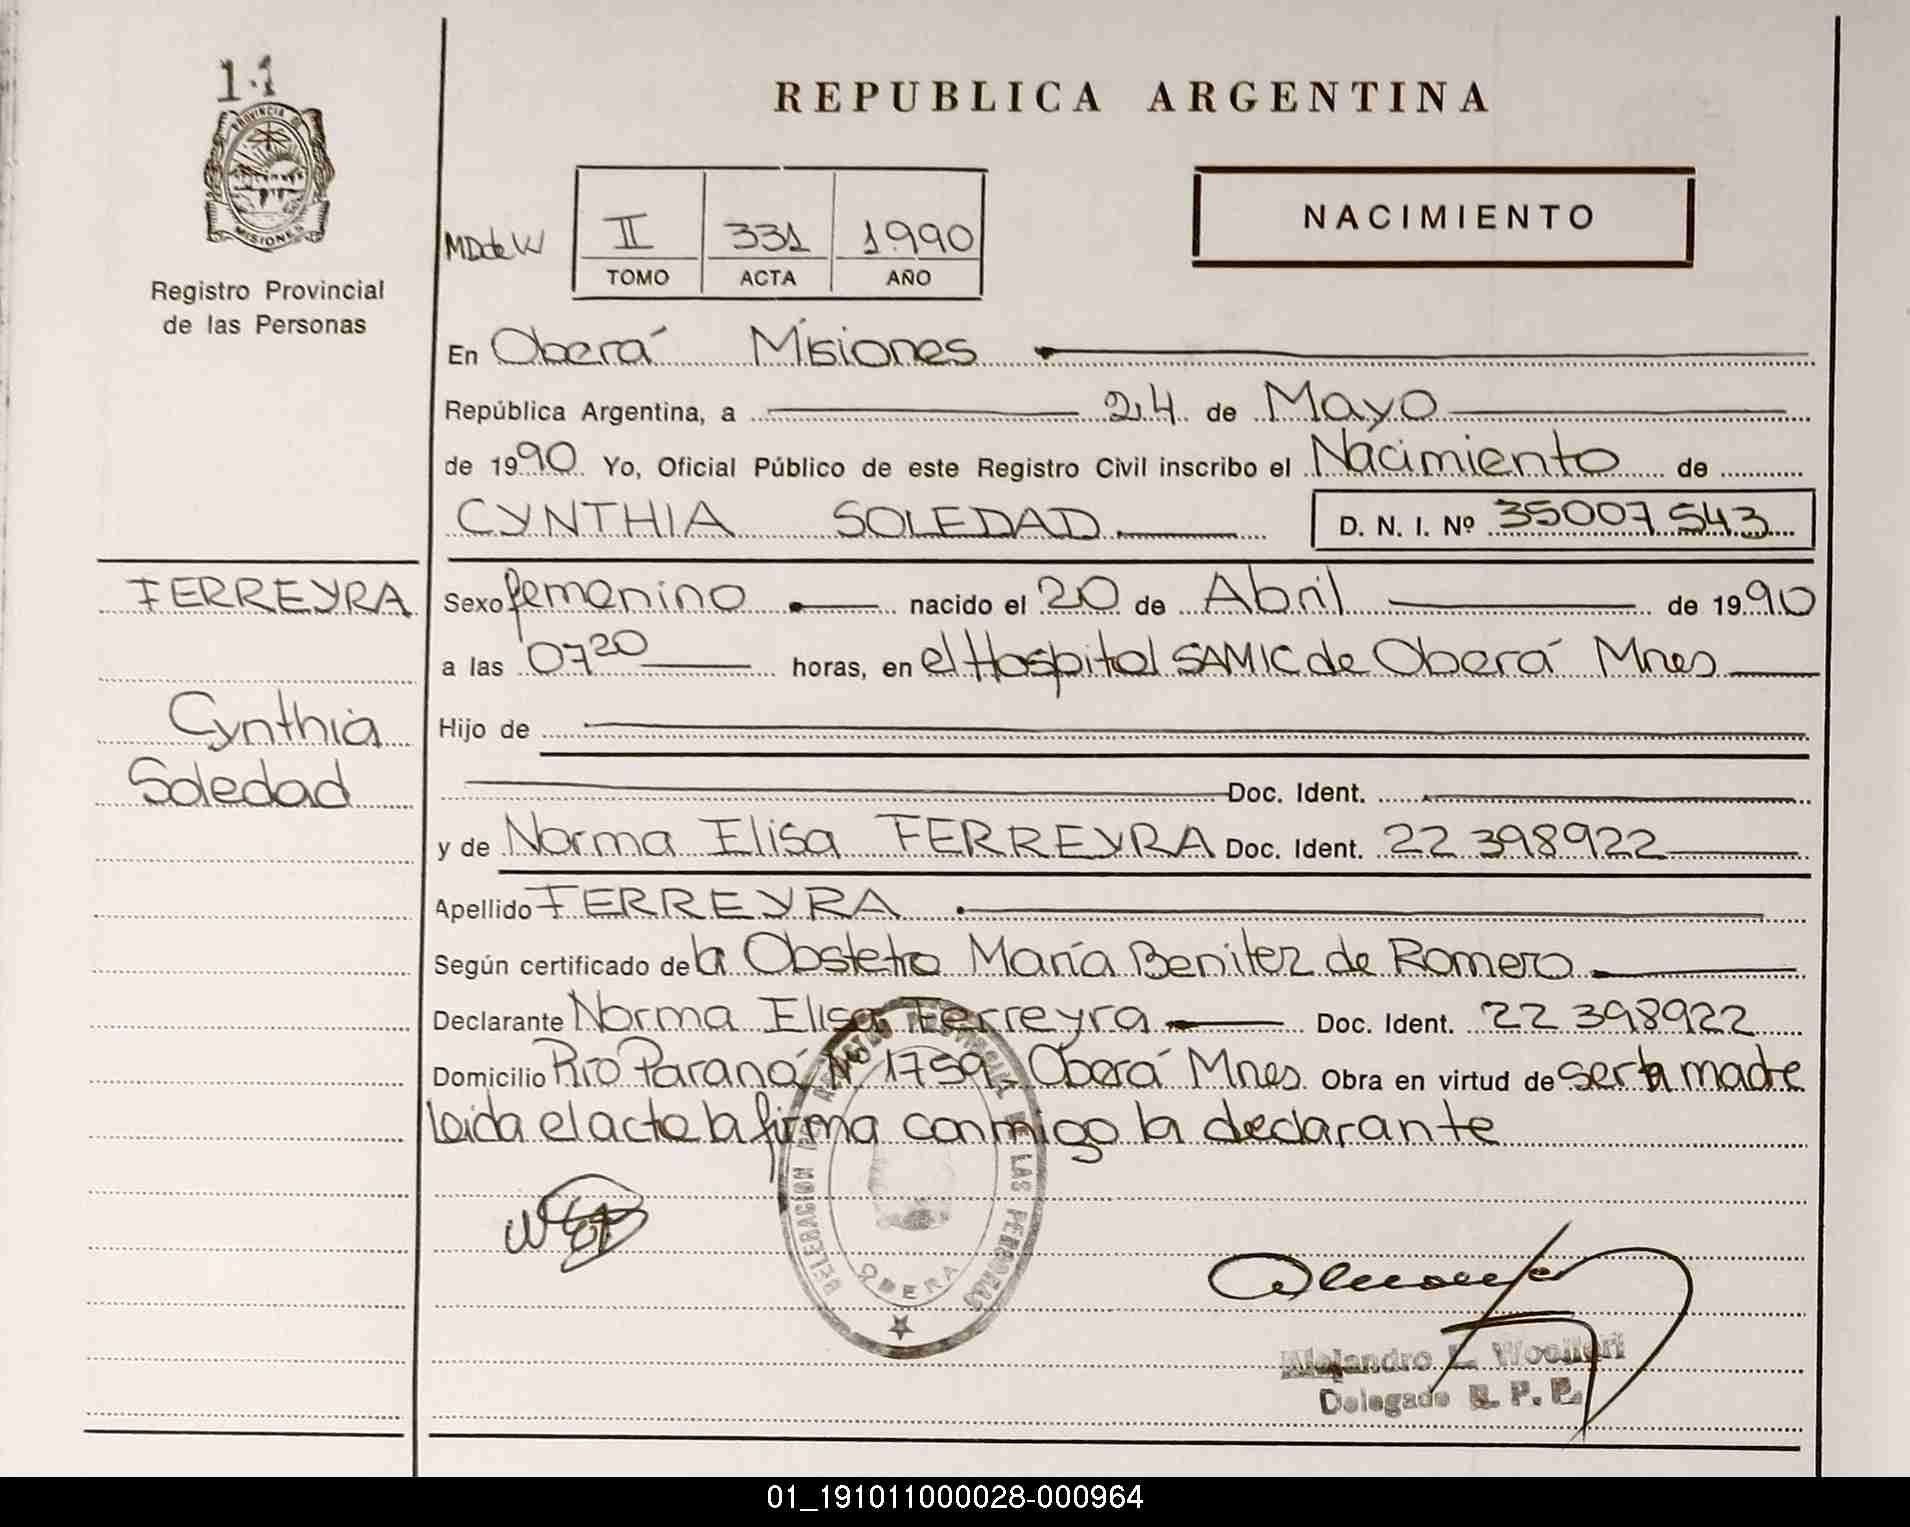 1.1
PROVINCIA DE
MISIONES
Registro Provincial
de las Personas
REPUBLICA ARGENTINA
MDdeW
II 331 1990
TOMO ACTA AÑO
NACIMIENTO
En Oberá Misiones
República Argentina, a 24 de Mayo
de 1990 Yo, Oficial Público de este Registro Civil inscribo el Nacimiento de
CYNTHIA SOLEDAD D. N. I. Nº 35007543
FERREYRA
Cynthia
Soledad
Sexo femenino nacido el 20 de Abril de 1990
a las 0720 horas, en el Hospital SAMIC de Oberá Mnes
Hijo de
Doc. Ident.
y de Norma Elisa FERREYRA Doc. Ident. 22 398922
Apellido FERREYRA
Según certificado de la Obstetra María Benitez de Romero
Declarante Norma Elisa Ferreyra Doc. Ident. 22 398922
Domicilio Río Paraná Nº 1759, Oberá Mnes. Obra en virtud de ser la madre
leida el acta la firma conmigo la declarante
DELEGACION PROVINCIAL DE LAS PERSONAS
OBERA
Alejandro L.
Delegado R. P. P.
01_191011000028-000964